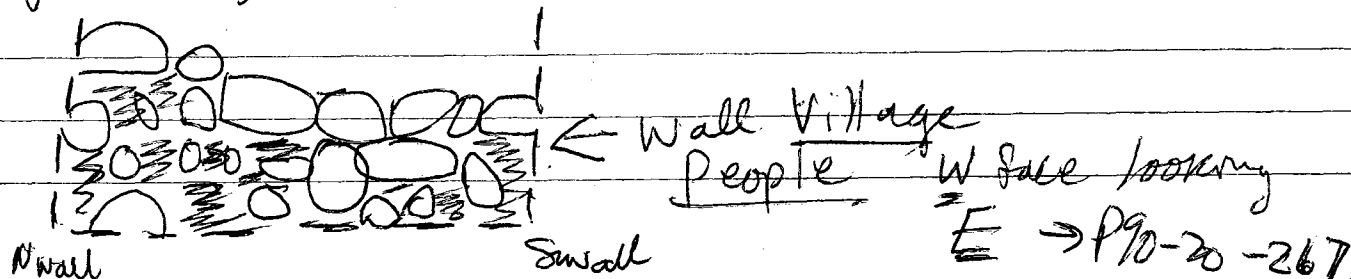 ← Wall Village
People W face looking
E → P90-20-267
N wall S wall